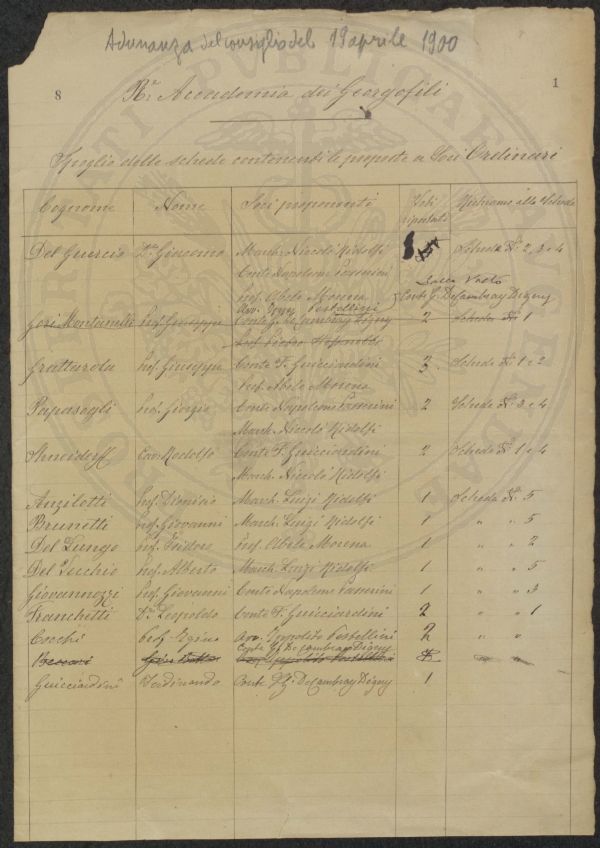 Adunanza del consiglio del 19 aprile 1900
8
1
Rª Accademia dei Georgofili
Spoglio delle schede contenenti le proposte a Soci Ordinari
Cognome Nome Soci proponenti Voti riportati Richiamo alle Schede
Del Guercio Dr Giacomo March. Niccolò Ridolfi Schede N. 2, 3 e 4
Conte Napoleone Passerini
Prof. Abele Morena
Avv. Ippol. Pestellini Conte G. De Cambray Digny
Gori Montanelli Prof. Giuseppe Conte G. De Cambray Digny 2 Scheda N. 1
Grattarola Prof. Giuseppe Conte F. Guicciardini 3 Schede N. 1 e 2
Prof. Abele Morena
Papasogli Prof. Giorgio Conte Napoleone Passerini 2 Schede N. 3 e 4
March. Niccolò Ridolfi
Cav. Rodolfo Conte F. Guicciardini 2 Schede N. 1 e 4
March. Niccolò Ridolfi
Anzilotti Prof. Dionisio March. Luigi Ridolfi 1 Scheda N. 5
Brunetti Prof. Giovanni March. Luigi Ridolfi 1 " " 5
Del Lungo Prof. Isidoro Prof. Abele Morena 1 " " 2
Del Vecchio Prof. Alberto March. Luigi Ridolfi 1 " " 5
Giovannozzi Prof. Giovanni Conte Napoleone Passerini 1 " " 3
Franchetti Dr. Leopoldo Conte F. Guicciardini 2 " " 1
Cocchi Prof. Igino Avv. Ippolito Pestellini 2 " "
Conte G. De Cambray Digny
Avv. Ippolito Pestellini
Guicciardini Ferdinando Conte G. De Cambray Digny 1